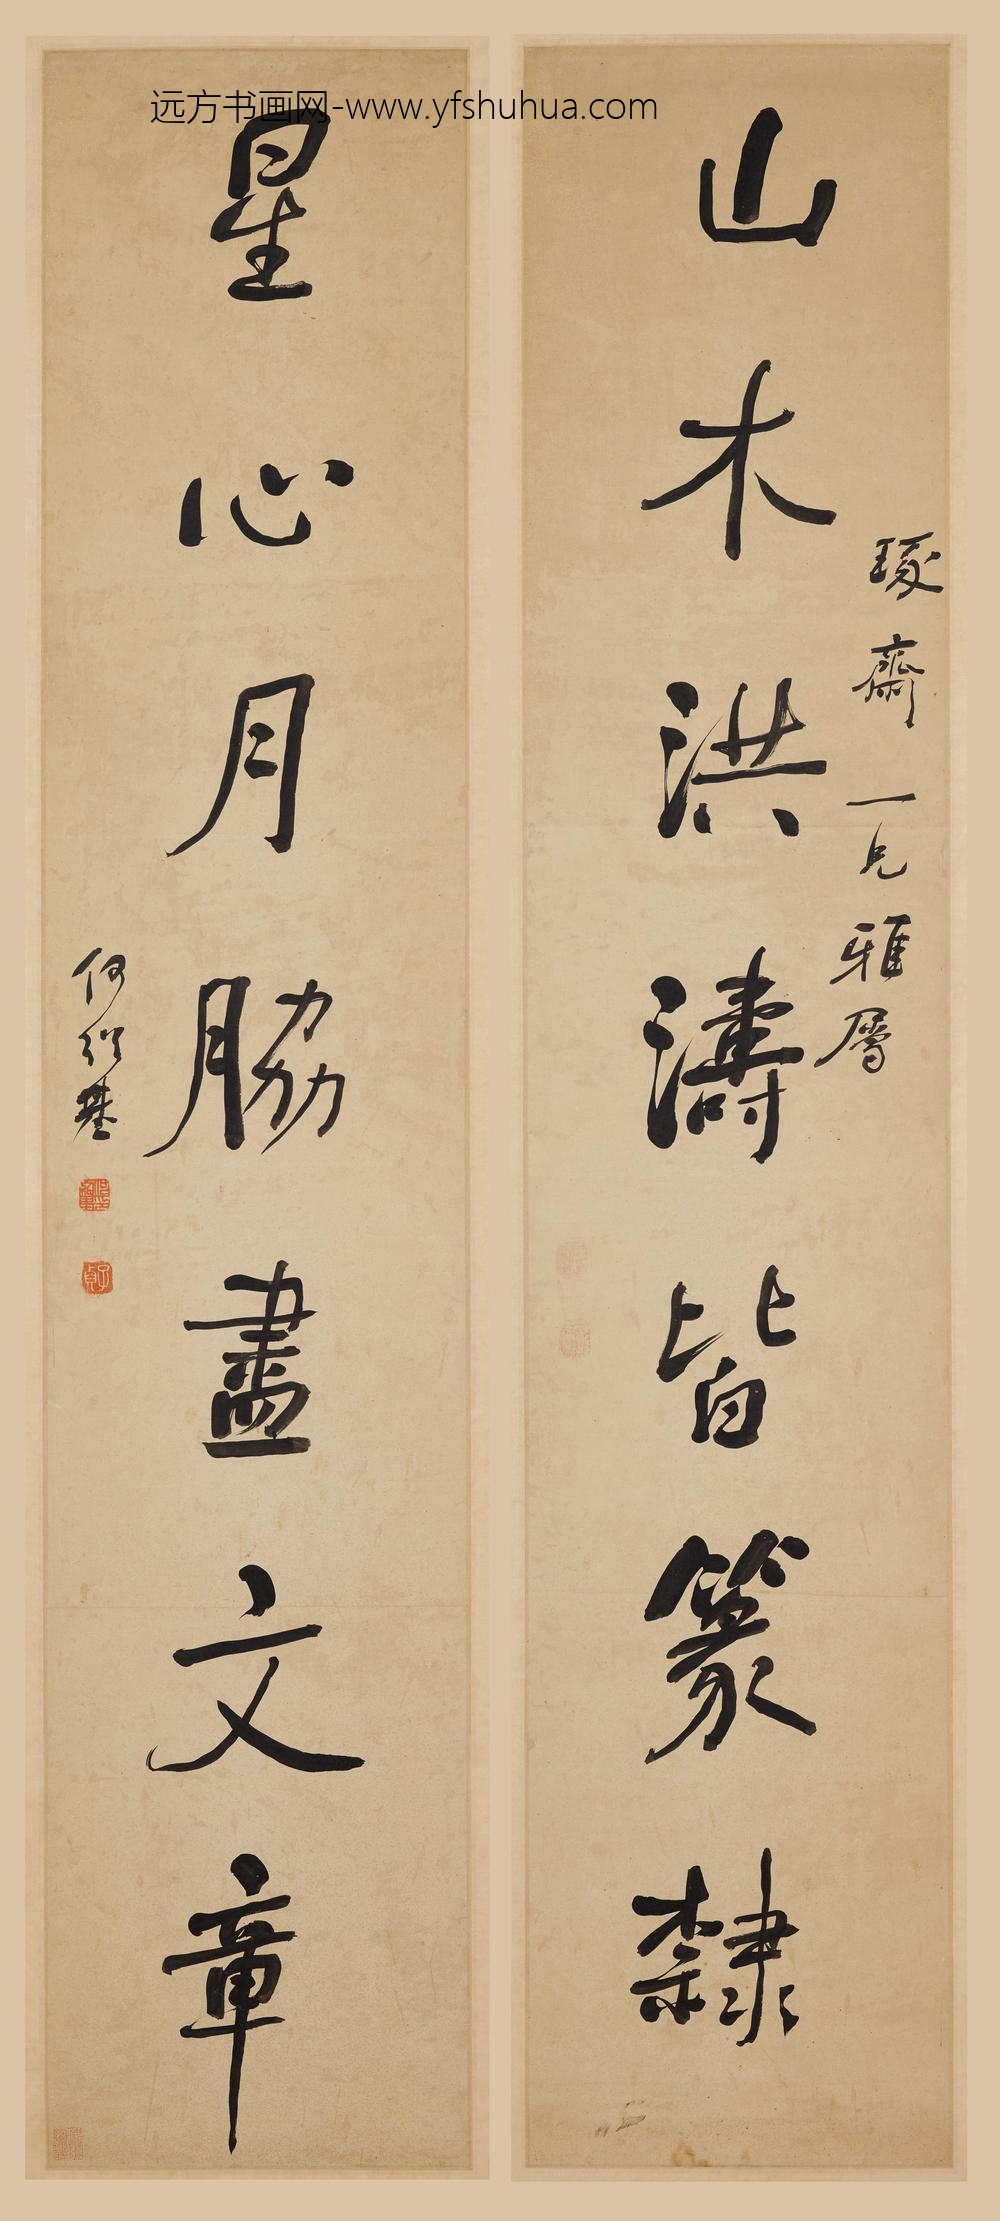 远方书画网-www.yfshuhua.com
山木洪濤皆篆隸
琢齋一兄雅屬
星心月脇盡文章
何紹基
子貞